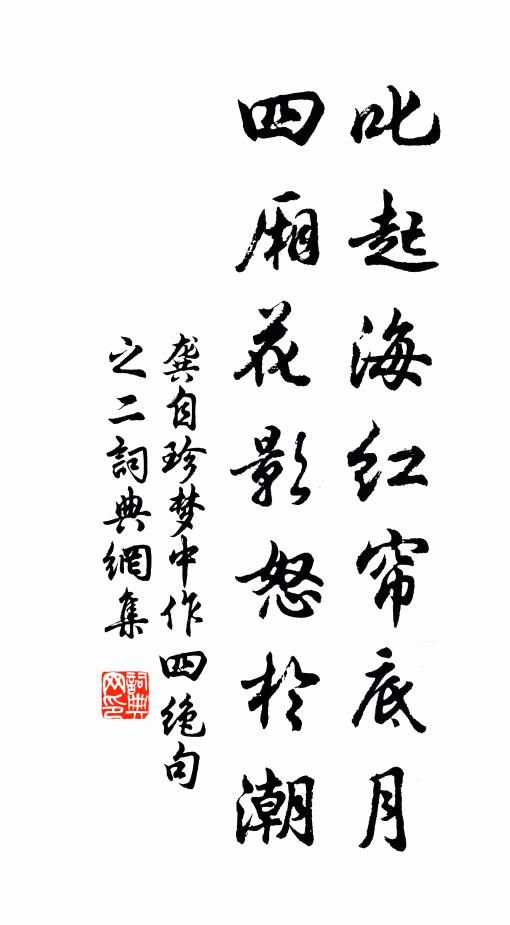 叱起海红帘底月
四厢花影怒於潮
龚自珍梦中作四绝句
之二詞典網集
詞典网印